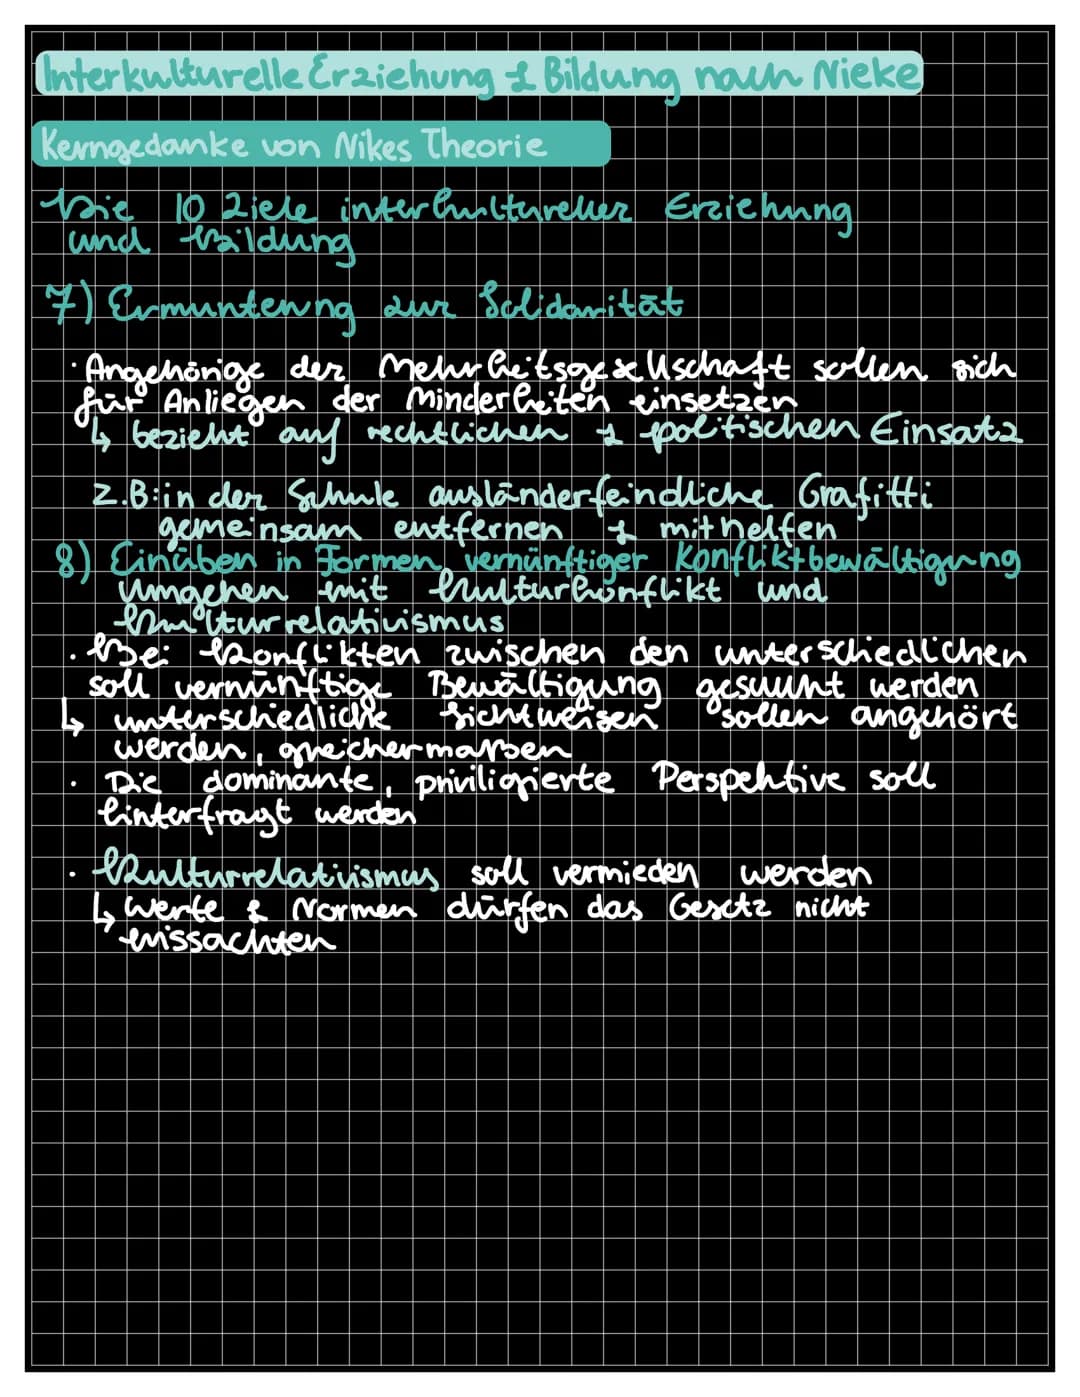 Interkulturelle Erziehung & Bildung nach Nieke
Kerngedanke von Nikes Theorie
Die 10 Ziele interkultureller Erziehung
und Bildung
7) Ermunterung zur Solidarität
· Angehörige der Mehrheitsgesellschaft sollen sich
für Anliegen der Minderheiten einsetzen
↳ bezieht auf rechtlichen & politischen Einsatz
z.B: in der Schule ausländerfeindliche Grafitti
gemeinsam entfernen & mithelfen
8) Einüben in Formen vernünftiger Konfliktbewältigung
Umgehen mit Kulturkonflikt und
Kulturrelativismus
· Bei Konflikten zwischen den unterschiedlichen
soll vernünftige Bewältigung gesucht werden
↳ unterschiedliche Sichtweisen sollen angehört
werden, gleichermaßen
· Die dominante, priviligierte Perspektive soll
hinterfragt werden
· Kulturrelativismus soll vermieden werden
↳ Werte & Normen dürfen das Gesetz nicht
missachten